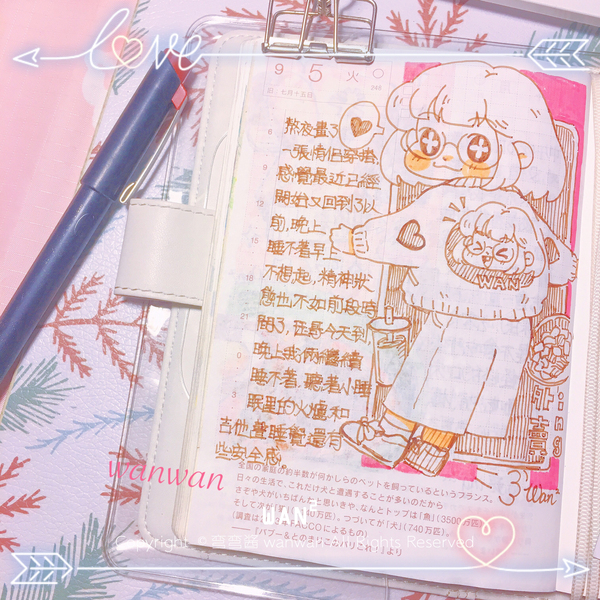 love
9 5 火
旧 七月十五日
248
6
9
12
15
18
21
0
3
熬夜畫了
一張情侶穿搭,
感覺最近已經
開始又回到了以
前,晚上
睡不着早上
不想起,精神狀
態也不如前段時
間了,
今天到
晚上我
繼續
睡不着,聽着小睡
眠里的火爐和
吉他聲睡覺還有
些安全感
WAN
外賣ing
Wan
全国の家庭の約半数が何かしらのペットを飼っているというフランス。
日々の生活で、これだけ犬と遭遇することが多いのだから
さぞや犬がいちばん?と思いきや、なんとトップは「魚」(3500万匹)
そして次
万匹)。つづいてが「犬」(740万匹)。
(調査は
CCOによるもの)
wanwan
WAN
Copyright ©
wanwan All Rights Reserved